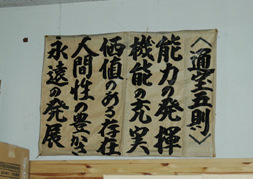 〈通宝五則〉
能力の発揮
機能の充実
価値のある存在
人間性の豊かさ
永遠の発展